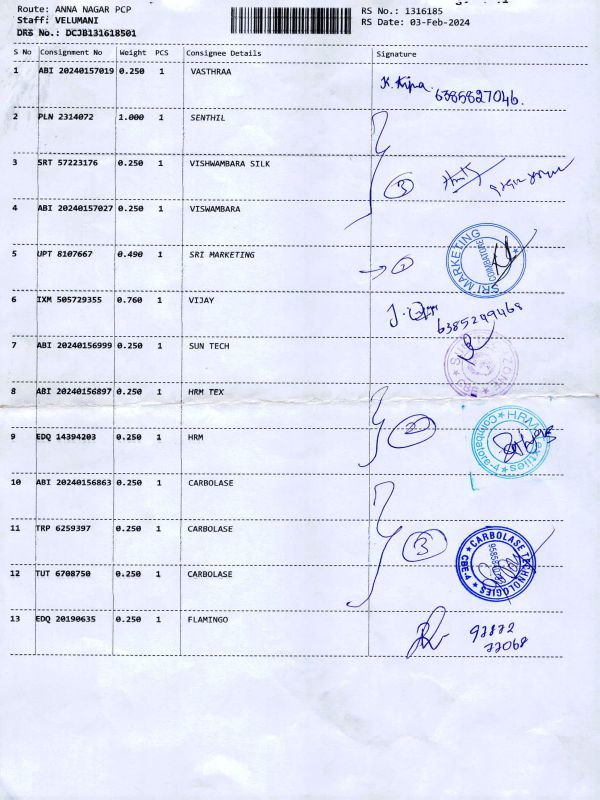 Route: ANNA NAGAR PCP
Staff: VELUMANI
DRS No.: DCJB131618501
RS No.: 1316185
RS Date: 03-Feb-2024
S No Consignment No Weight PCS Consignee Details Signature
1 ABI 20240157019 0.250 1 VASTHRAA
6385827046.
2 PLN 2314072 1.000 1 SENTHIL
3 SRT 57223176 0.250 1 VISHWAMBARA SILK
3
4 ABI 20240157027 0.250 1 VISWAMBARA
5 UPT 8107667 0.490 1 SRI MARKETING
SRI MARKETING COIMBATORE
6 IXM 505729355 0.760 1 VIJAY
6385249468
7 ABI 20240156999 0.250 1 SUN TECH
CBE
8 ABI 20240156897 0.250 1 HRM TEX
2
9 EDQ 14394203 0.250 1 HRM
10 ABI 20240156863 0.250 1 CARBOLASE
11 TRP 6259397 0.250 1 CARBOLASE
3
CARBOLASE TECHNOLOGIES
12 TUT 6708750 0.250 1 CARBOLASE
13 EDQ 20190635 0.250 1 FLAMINGO